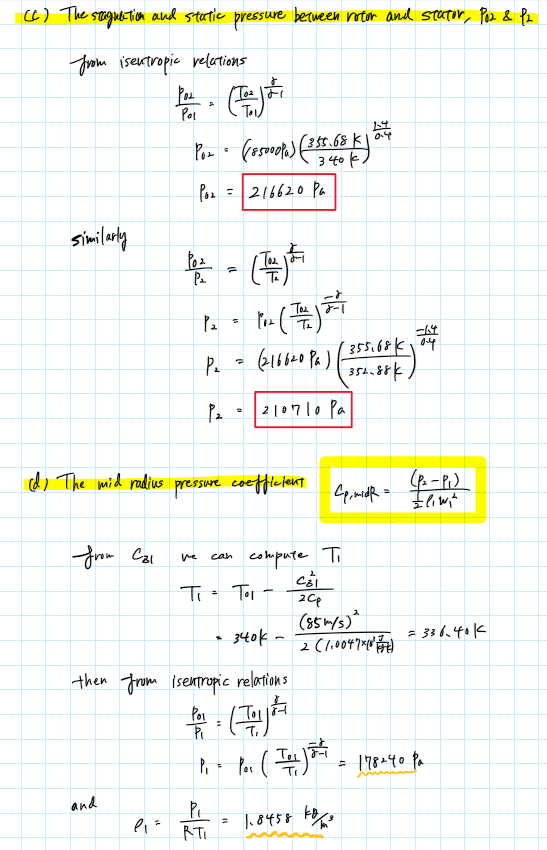 (c) The stagnation and static pressure between rotor and stator, P02 & P2
from isentropic relations
P02/P01 = (T02/T01)^(γ/(γ-1))
P02 = (185000Pa) (355.68 K / 340 K)^(1.4/0.4)
P02 = 216620 Pa
similarly
P02/P2 = (T02/T2)^(γ/(γ-1))
P2 = P02 (T02/T2)^(-γ/(γ-1))
P2 = (216620 Pa) (355.68 K / 352.88 K)^(-1.4/0.4)
P2 = 210710 Pa
(d) The mid radius pressure coefficient
Cp,midR = (P2 - P1) / (1/2 ρ1 W1²)
from C31 we can compute T1
T1 = T01 - C31² / 2Cp
= 340K - (85 m/s)² / 2 (1.0047×10³ J/kgK) = 336.40 K
then from isentropic relations
P01/P1 = (T01/T1)^(γ/(γ-1))
P1 = P01 (T01/T1)^(-γ/(γ-1)) = 178240 Pa
and
ρ1 = P1/RT1 = 1.8458 kg/m³